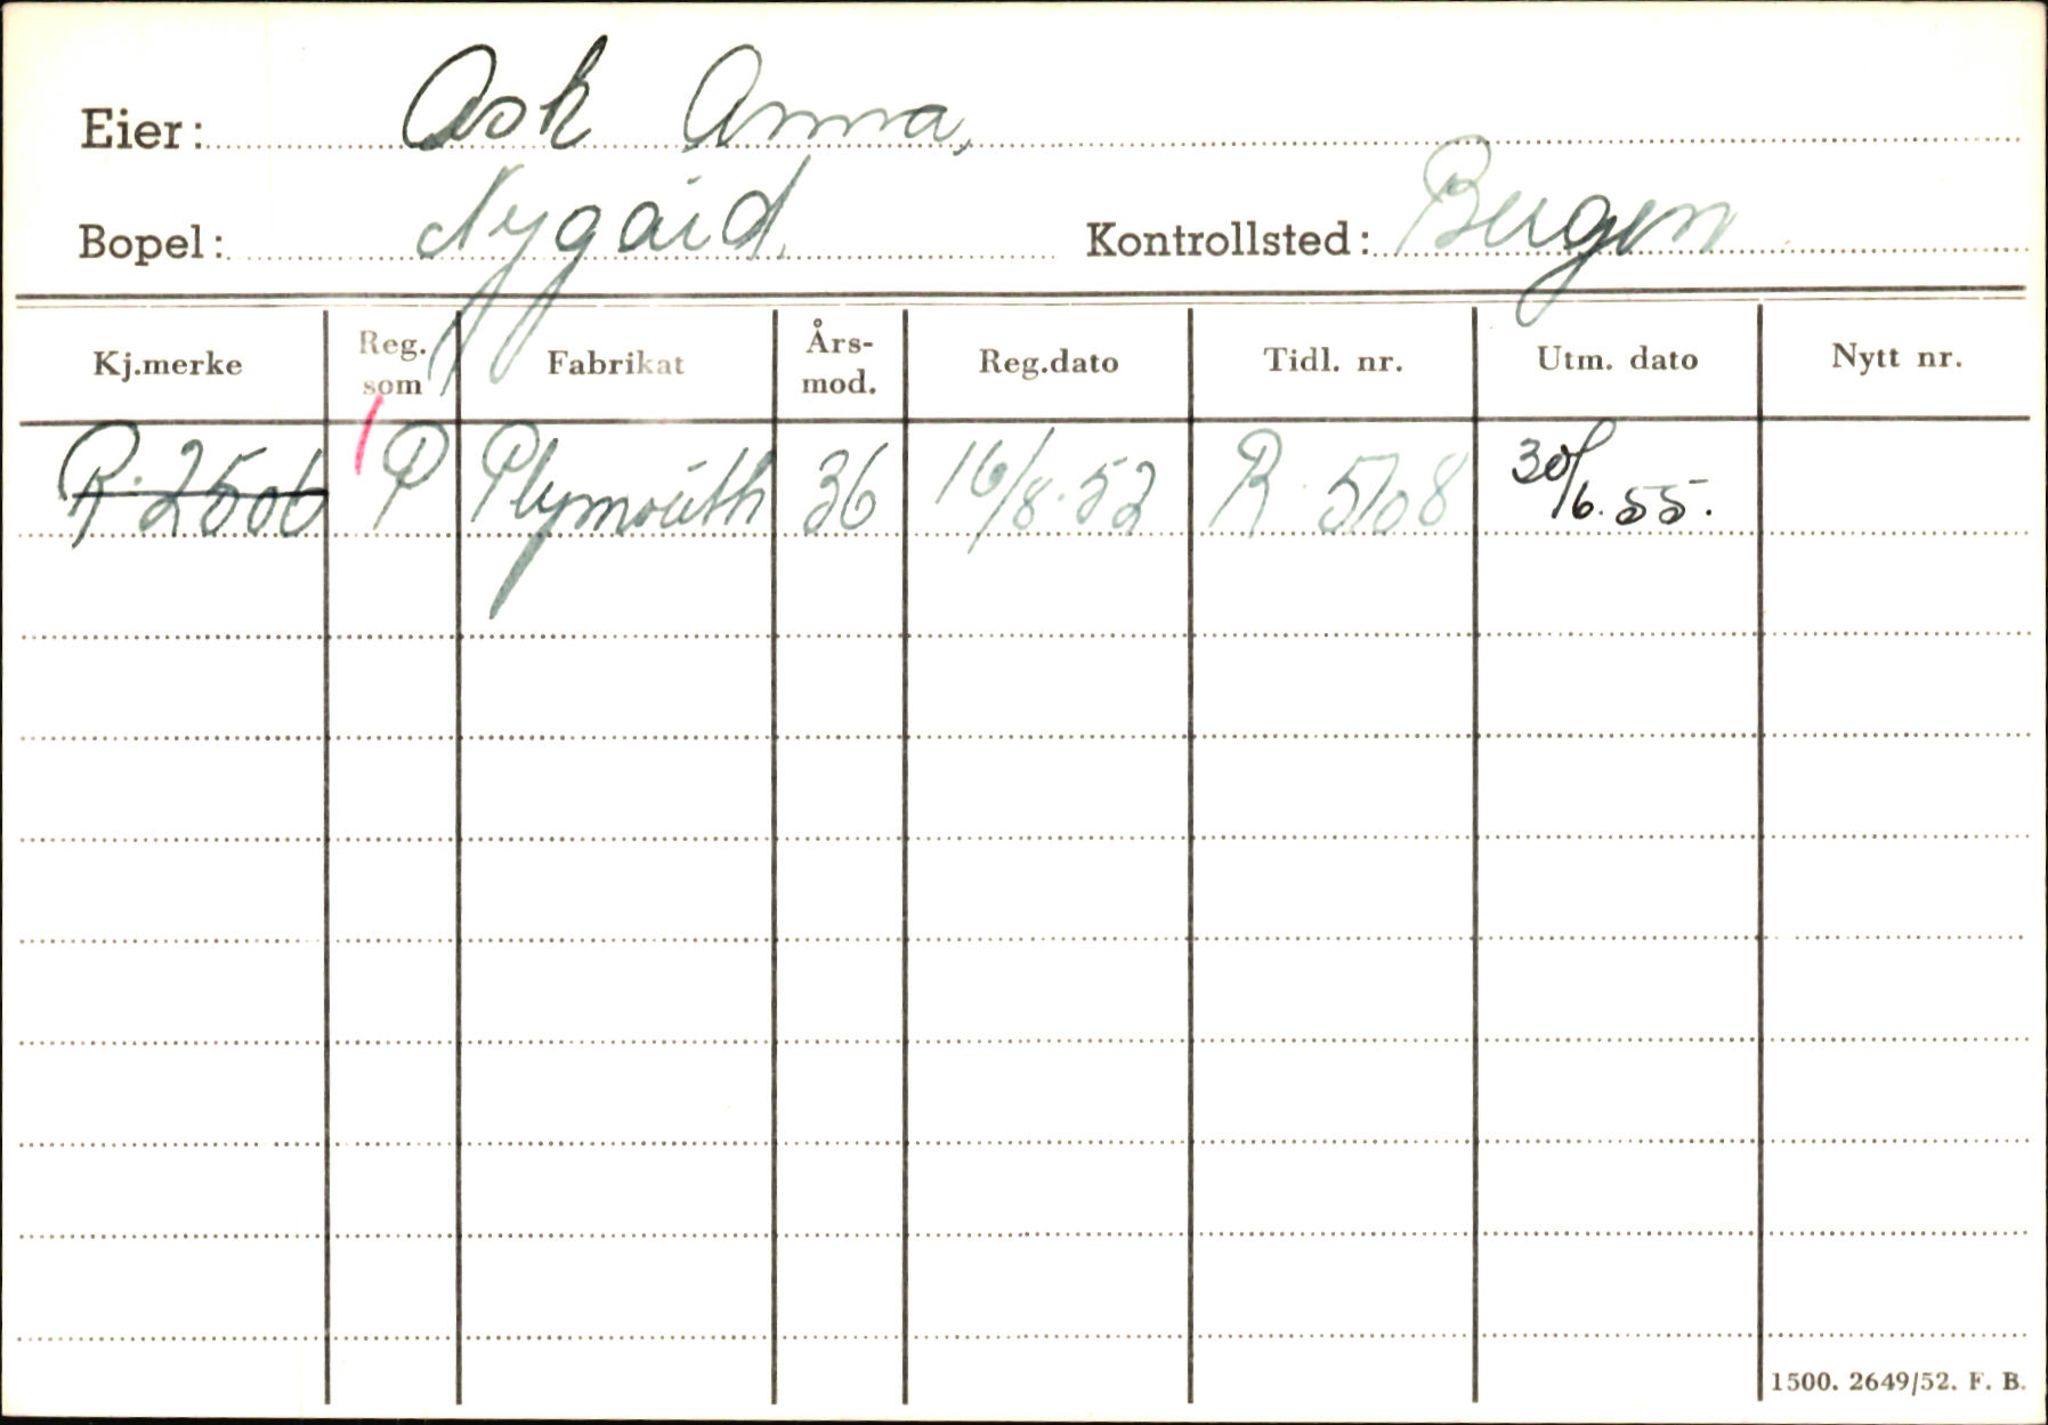 Eier: Ask Anna,
Bopel: Nygård. Kontrollsted: Bergen
Kj.merke Reg. som Fabrikat Års- mod. Reg.dato Tidl. nr. Utm. dato Nytt nr.
R. 2506 P Plymouth 36 16/8.52 R. 5708 30/6.55.
1500. 2649/52. F. B.